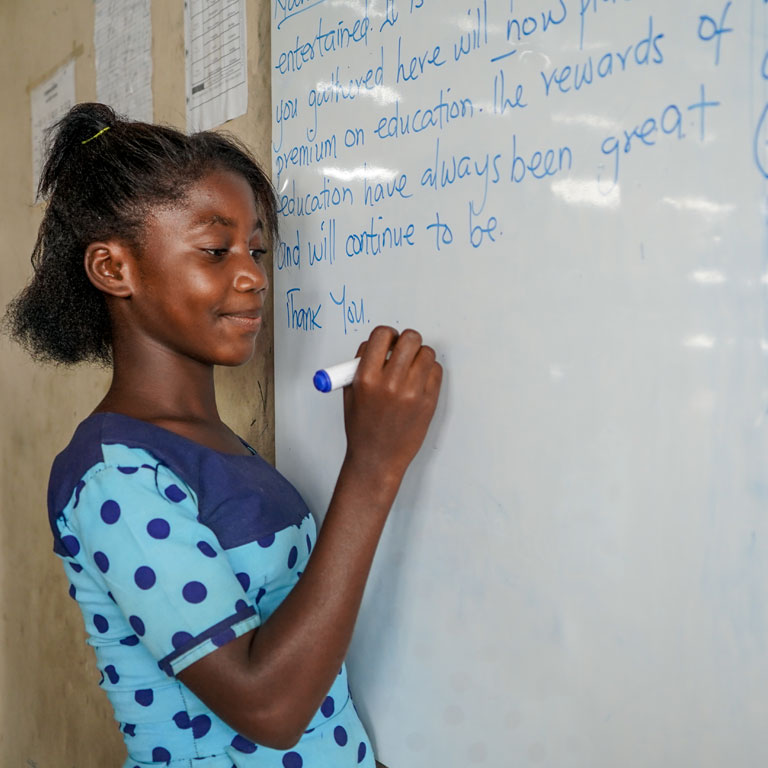 entertained. It is
you gathered here will now place
premium on education. The rewards of
education have always been great
and will continue to be.
Thank You.